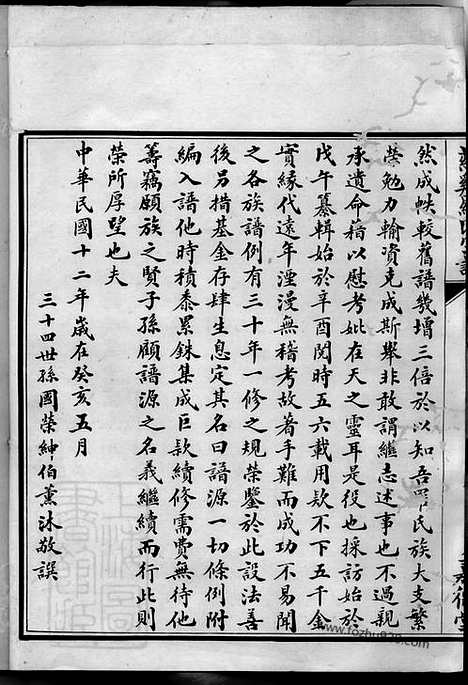 然成帙較舊譜幾增三倍於以知吾羅氏族大支繁
榮勉力輸資克成斯舉非敢謂繼志述事也不過親
承遺命藉以慰考妣在天之靈耳是役也採訪始於
戊午纂輯始於辛酉閱時五六載用欵不下五千金
實緣代遠年湮漫無稽考故著手難而成功不易聞
之各族譜例有三十年一修之規榮鑒於此設法善
後另措基金存肆生息定其名曰譜源一切條例附
編入譜他時積黍累銖集成巨欵續修需費無待他
籌竊願族之賢子孫顧譜源之名義繼續而行此則
榮所厚望也夫
中華民國十二年歲在癸亥五月
三十四世孫國榮紳伯薰沐敬譔
www.fozhu920.com